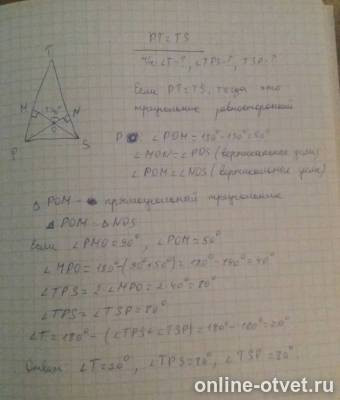 PT = TS
∠T = ?, ∠TPS = ?, TSP = ?
Если PT = TS, тогда это
треугольник равносторонний
T
M
N
130°
O
P
S
∠POM = 180° - 130° = 50°
∠MON = ∠POS (вертикальные углы)
∠POM = ∠NOS (вертикальные углы)
△ POM - прямоугольный треугольник
△ POM = △ NOS
Если ∠PMO = 90°, ∠POM = 50°
∠MPO = 180° - (90° + 50°) = 180° - 140° = 40°
∠TPS = 2·∠MPO = 2·40° = 80°
∠TPS = ∠TSP = 80°
∠T = 180° - (∠TPS + ∠TSP) = 180° - 160° = 20°
Ответ: ∠T = 20°, ∠TPS = 80°, ∠TSP = 80°.
online-otvet.ru